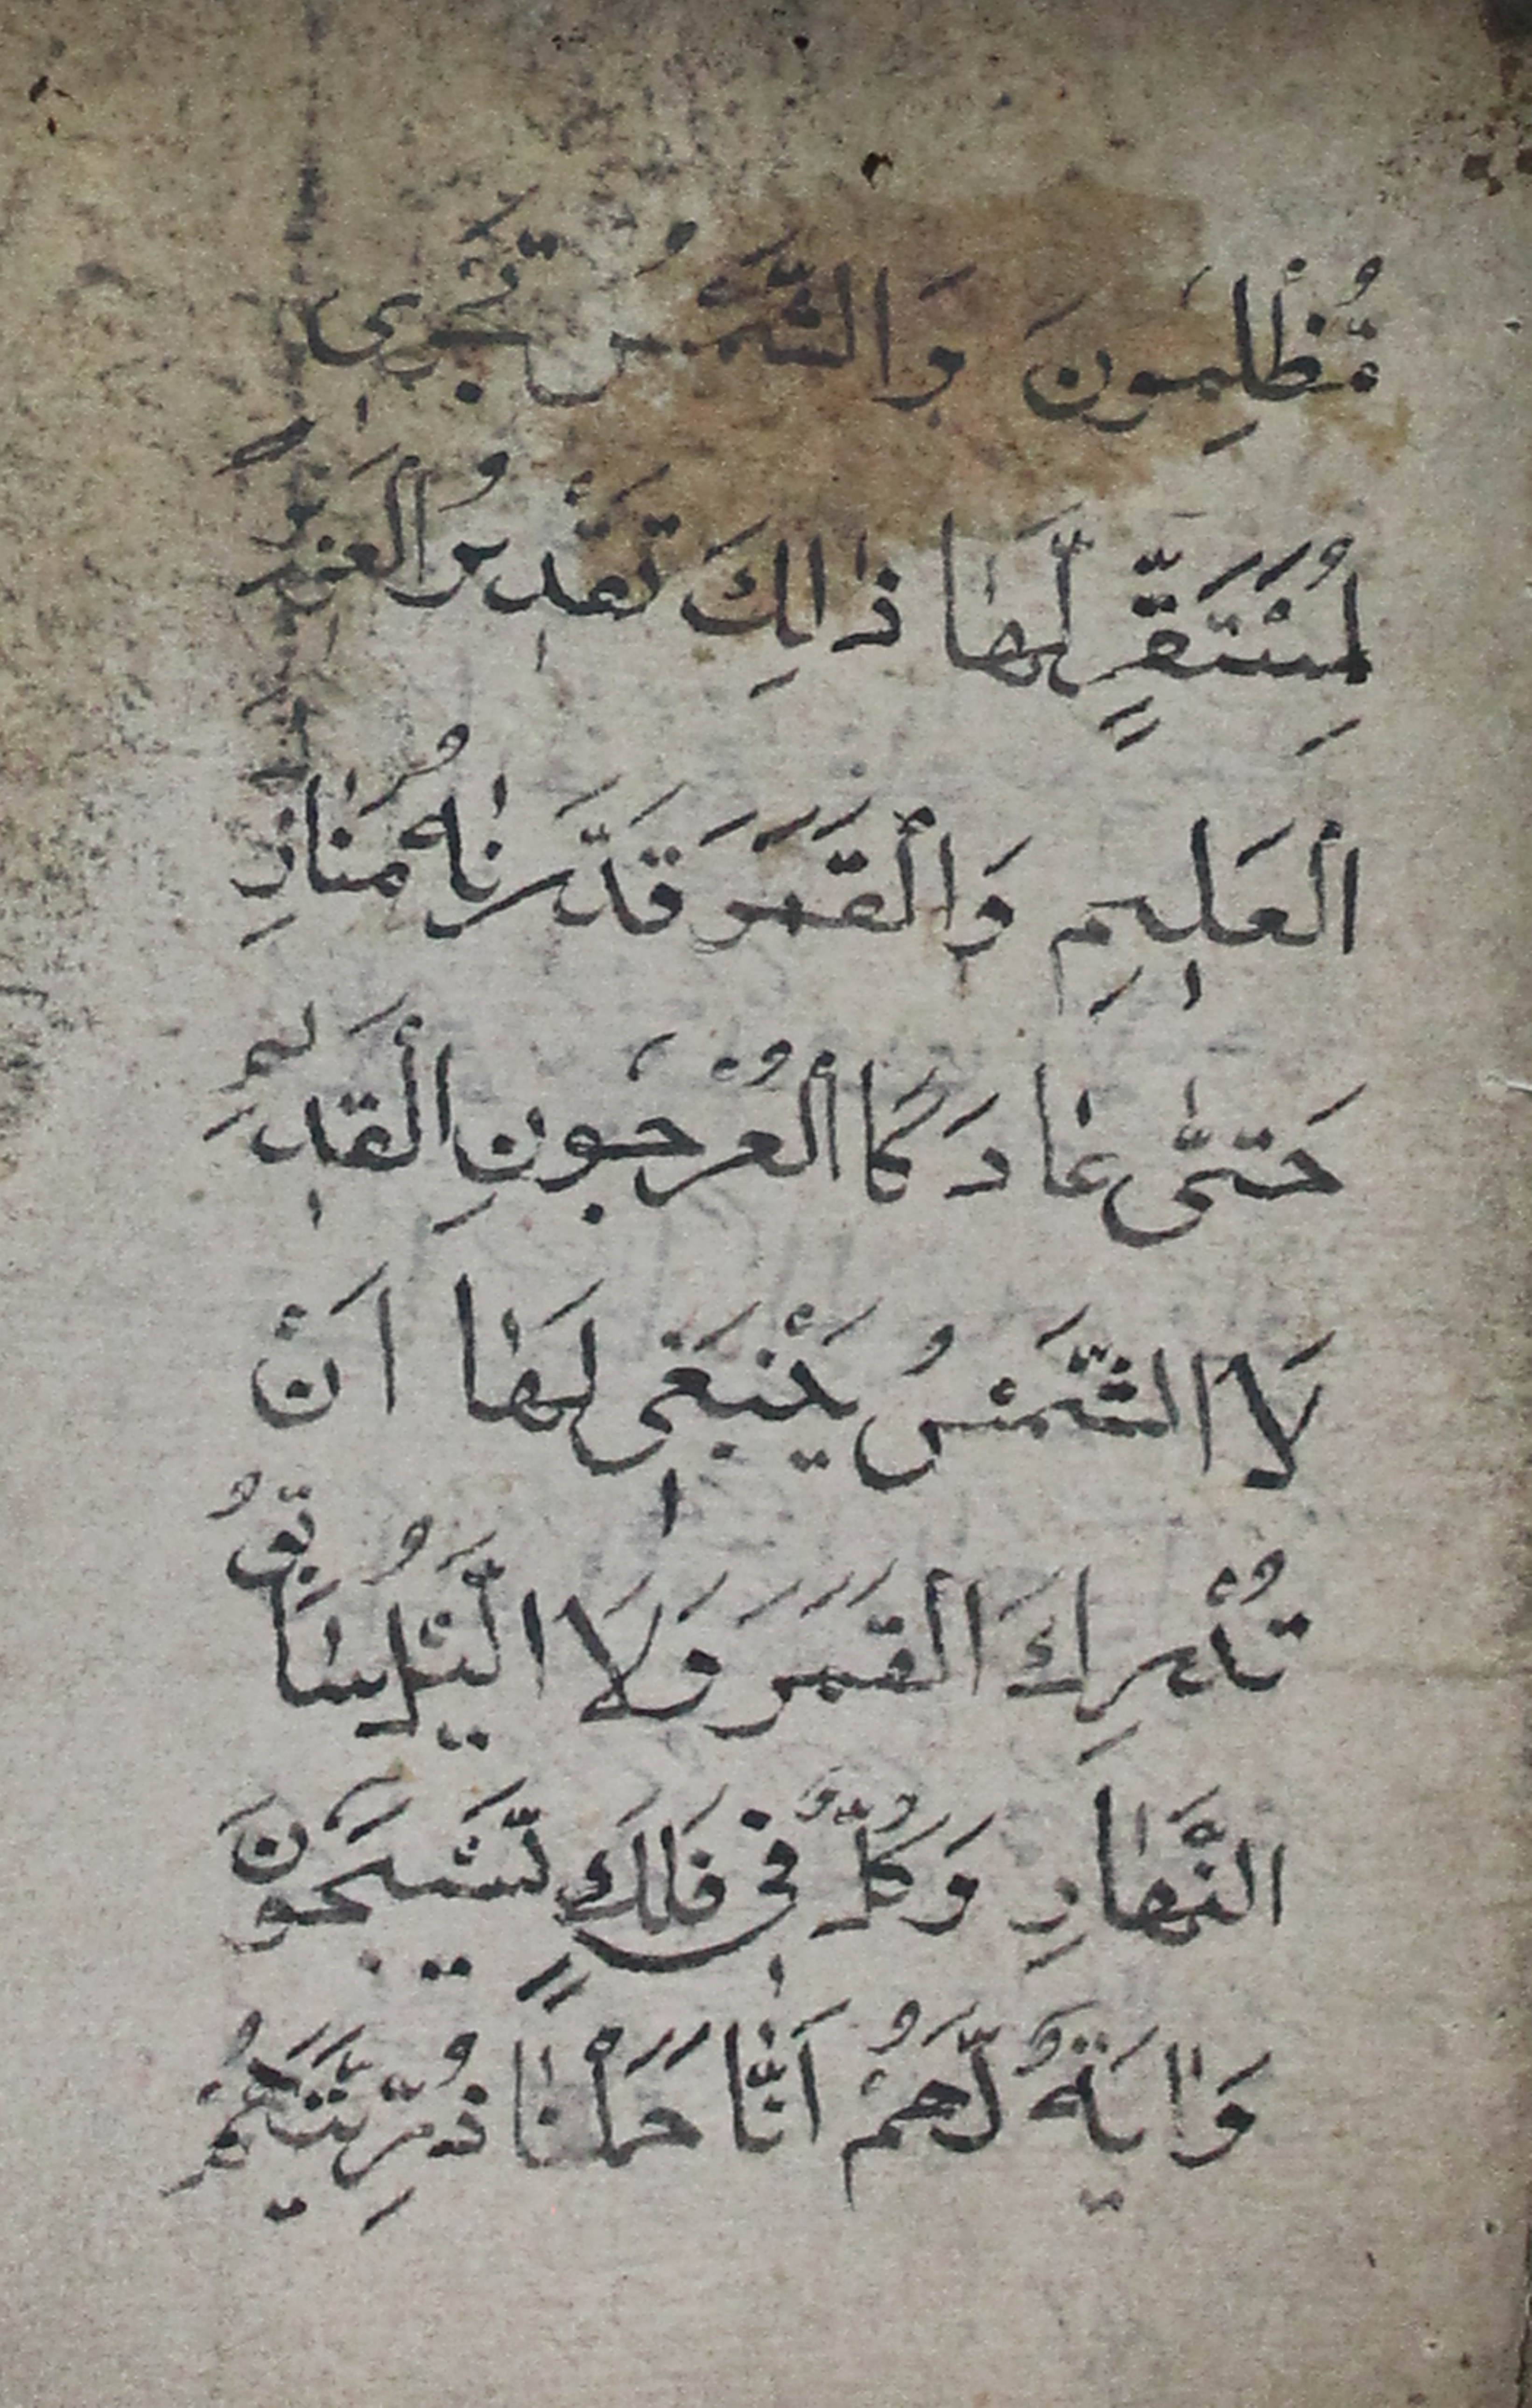 مُّظْلِمُونَ وَالشَّمْسُ تَجْرِى
لِمُسْتَقَرٍّ لَّهَا ذَالِكَ تَقْدِيرُ الْعَزِيزِ
الْعَلِيمِ وَالْقَمَرَ قَدَّرْنَاهُ مَنَازِ
حَتَّى عَادَ كَاالْعُرْجُونِ الْقَدِيمِ
لَا الشَّمْسُ يَنْبَغِى لَهَا اَنْ
تُدْرِكَ الْقَمَرَ وَلَا الَّيْلُ سَابِقُ
النَّهَارِ وَكُلٌّ فِى فَلَكٍ يَّسْبَحُونَ
وَاٰيَةٌ لَّهُمْ اَنَّا حَمَلْنَا ذُرِّيَّتَهُمْ